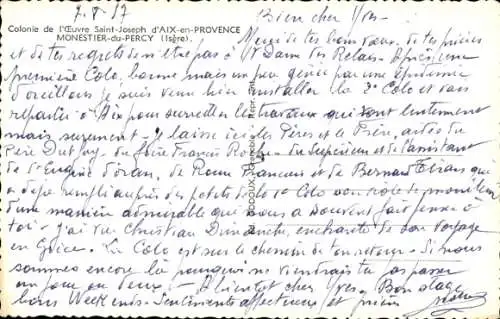 7-8-57
Bien cher Yves-
Colonie de l'Œuvre Saint-Joseph d'AIX-en-PROVENCE
MONESTIER-du-PERCY (Isère).
Merci de tes bons vœux, de tes prières
et de tes regrets de n'être pas à N. Dame des Relais. Après une
première Colo, bonne mais un peu gênée par une épidémie
d'oreillons je suis venu hier installer la 3° Colo et vais
repartir à Aix pour surveiller les travaux qui vont lentement
mais surement - Je laisse ici les Pères et le
Père du Frère Francis du Supérieur et de l'assistant
de St Eugène d'Oran, de Roux François et de Bernard qui
a déjà rempli auprès des petits de la 1° Colo son rôle de moniteur
d'une manière admirable qui nous a souvent fait penser à
toi - J'ai vu Christian Dimanche, enchanté de son voyage
en Grèce. La Colo est sur le chemin de ton retour - Si nous
sommes encore là pourquoi ne viendrais tu pas passer
un jour ou deux - A bientôt cher Yves - Bon stage
bons Week ends - Sentiments affectueux et prières